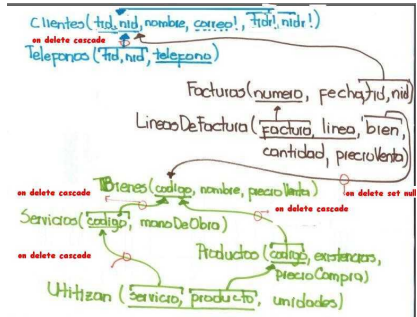 Clientes(tid,nid,nombre, correo!, tidr!,nidr!)
on delete cascade
Telefonos (tid,nid, telefono)
Facturas(numero, fecha,tid,nid)
LineasDeFactura (factura, linea, bien,
cantidad, precioVenta)
Bienes(codigo, nombre, precioVenta)
on delete cascade
on delete set null
Servicios(codigo, manoDeObra)
on delete cascade
Productos (codigo, existencias,
precioCompra)
on delete cascade
Utilizan (servicio, producto, unidades)